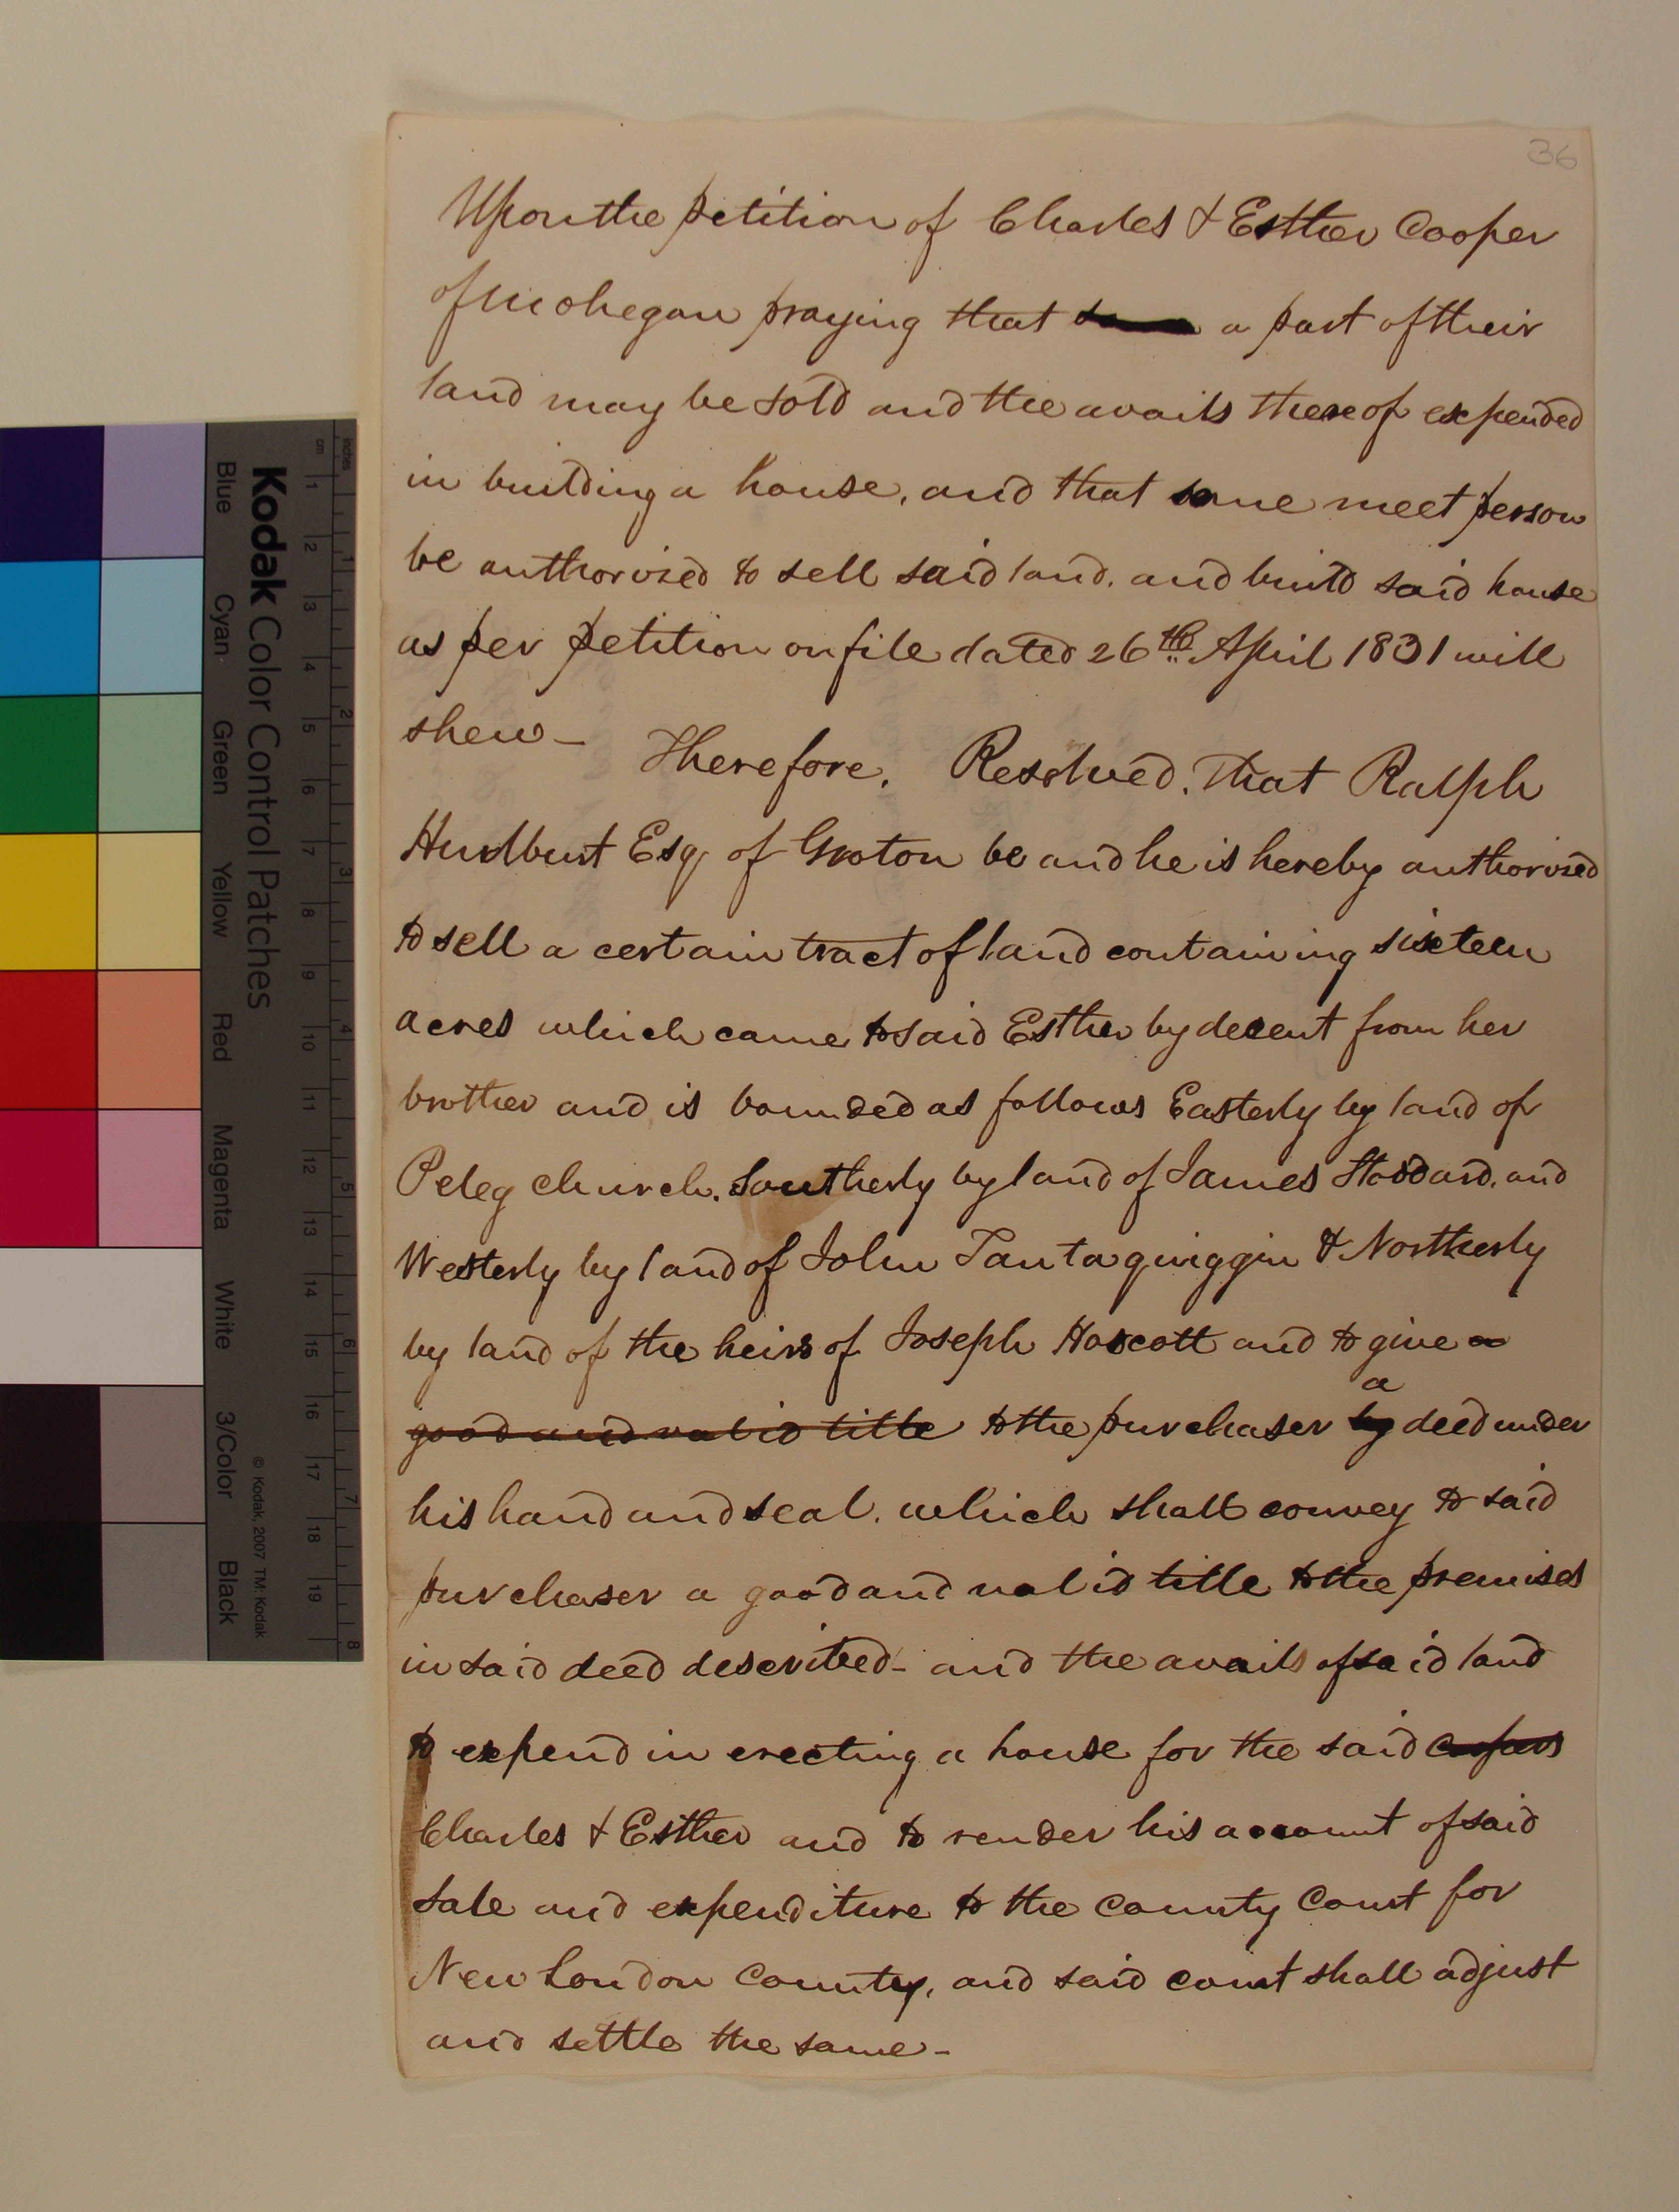 36
Upon the petition of Charles & Esther Cooper
of Mohegan praying that a part of their
land may be sold and the avails thereof expended
in building a house, and that some meet person
be authorized to sell said land, and build said house
as per petition on file dated 26th April 1831 will
shew - Therefore, Resolved, That Ralph
Hurlburt Esq. of Groton be and he is hereby authorized
to sell a certain tract of land containing sixteen
acres which came to said Esther by decent from her
brother and is bounded as follows Easterly by land of
Peleg church, Southerly by land of James Stoddard, and
Westerly by land of John Tantaquiggin & Northerly
by land of the heirs of Joseph Hoscott and to give a
a
good and valid title to the purchaser by deed under
his hand and seal, which shall convey to said
purchaser a good and valid title to the premises
in said deed described - and the avails of said land
to expend in erecting a house for the said
Charles & Esther and to render his account of said
sale and expenditure to the County Court for
New London County, and said court shall adjust
and settle the same -
Kodak Color Control Patches
© Kodak, 2007 TM: Kodak
Blue Cyan Green Yellow Red Magenta White 3/Color Black
cm 1 2 3 4 5 6 7 8 9 10 11 12 13 14 15 16 17 18 19
inches 1 2 3 4 5 6 7 8